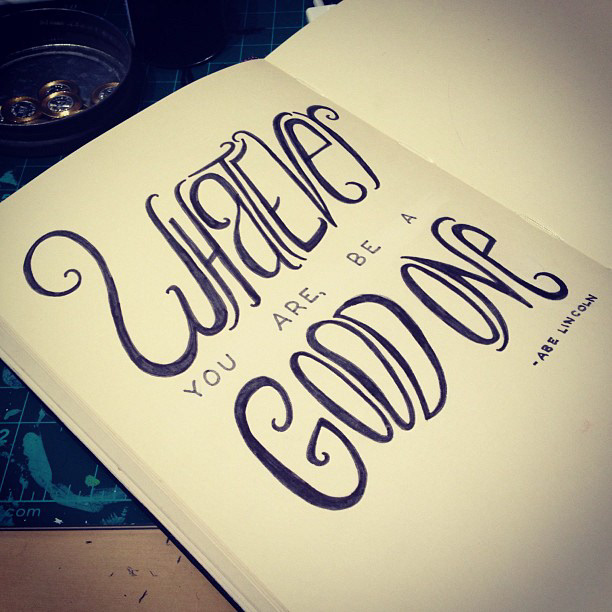 WHATEVer
YOU ARE, BE A
GOOD ONe
- ABE LINCOLN
com